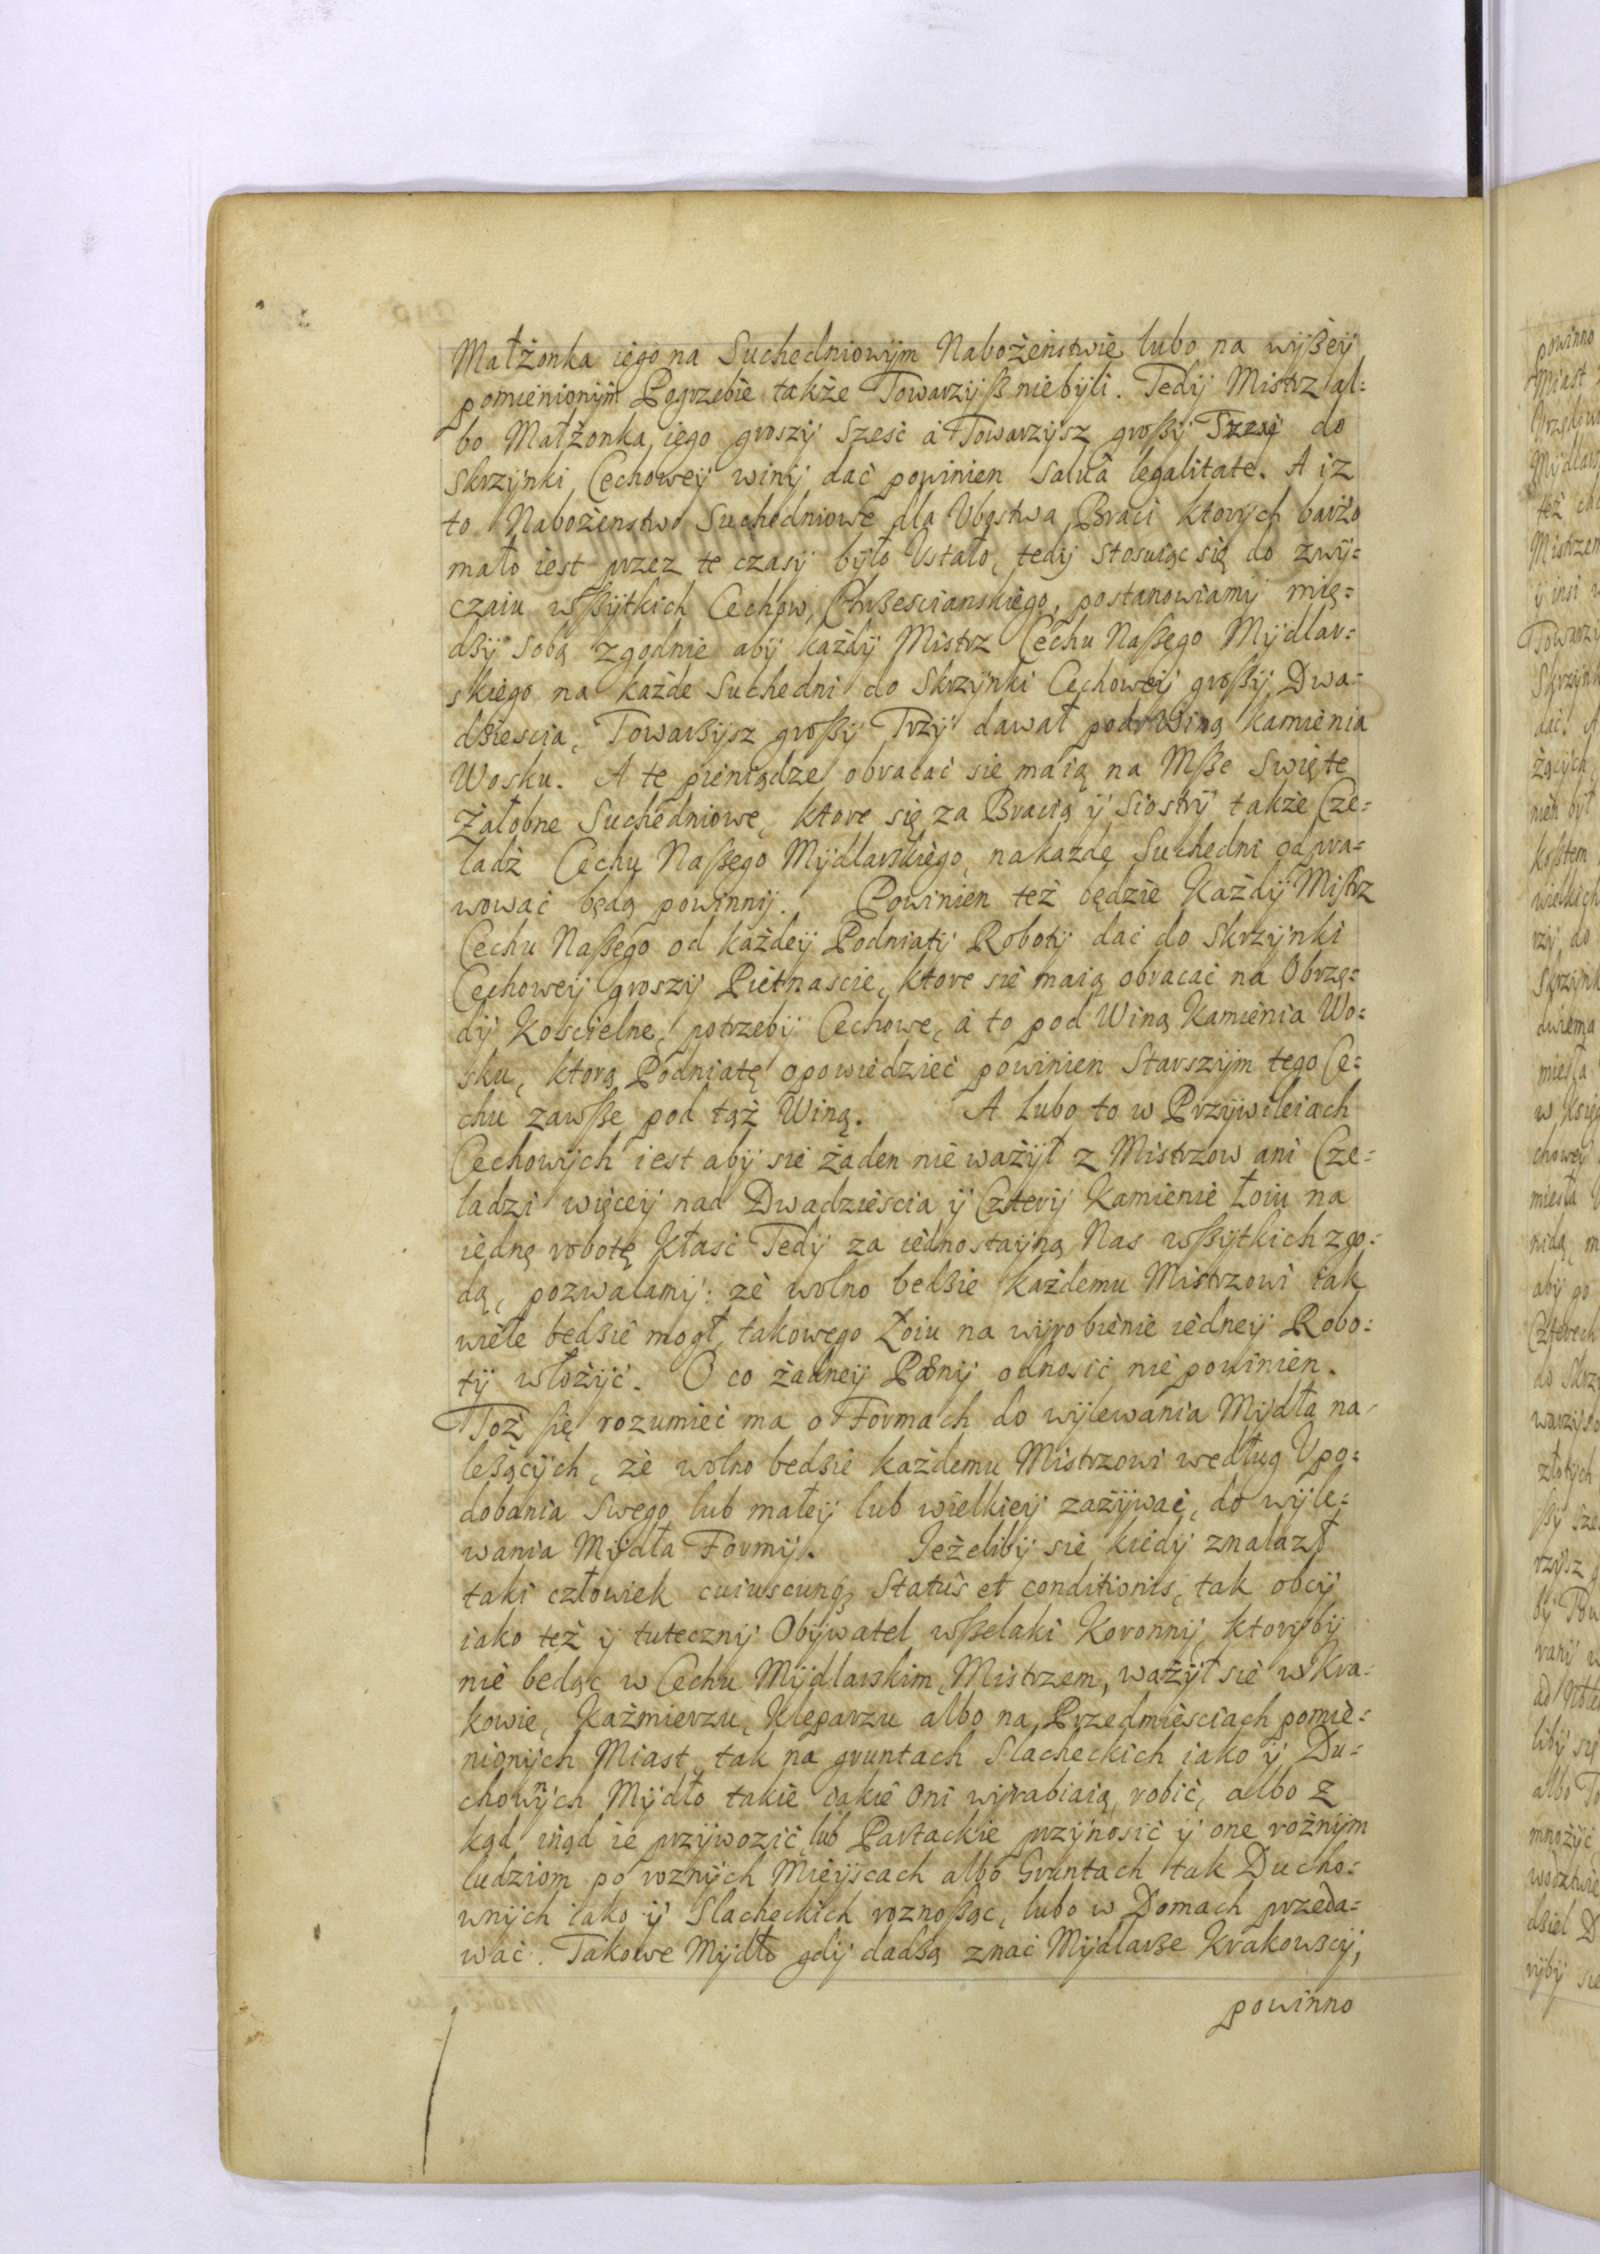 Małżonka iego na Suchedniowym Nabożeństwie lubo na wyßey
pomienionym Pogrzebie także Towarzyß niebyli. Tedy Mistrz al=
bo Małżonka iego groszy Sześć á Towarzysz großy Trzy do
Skrzynki Cechowey winy dać powinien salvâ legalitate. A iz
to Nabożenstwo Suchedniowe dla Vbostwa Braci ktorych barżo
mało iest przez te czasy było Vstało, tedy stosuiąc się do zwy=
czaiu wßytkich Cechow, Chrßescianskiego, postanowiamy mię=
dßy sobą zgodnie aby każdy Mistrz Cechu Naßego Mydlar=
skiego na każde Suchedni do Skrzynki Cechowey großy Dwa=
dßiescia, Towarßysz großy Trzy dawał pod Winą kamienia
Wosku. A te pieniądze obracać sie maią na Mße Swięte
Żałobne Suchedniowe, ktore się za Bracią y Siostry także Cze=
ladź Cechu Naßego Mydlarskiego, na każde Suchedni odpra=
wować będą powinny. Powinien też będzie Każdy Mistrz
Cechu Naßego od każdey Podniaty Roboty dać do Skrzynki
Cechowey groszy Pietnascie, ktore sie maią obracać na Obrzę=
dy Koscielne, potrzeby Cechowe, á to pod Winą Kamienia Wo=
sku, ktorą Podniatę opowiedzieć powinien Starszym tego Ce=
chu zawße pod tąż Winą. A lubo to w Przywileiach
Cechowych iest aby sie żaden nie ważył z Mistrzow ani Cze=
ladzi więcey nad Dwadzieścia y Cztery Kamienie Łoiu na
iedną robotę Kłasć Tedy za iednostayną Nas wßytkich zgo=
dą, pozwalamy: że wolno bedßie każdemu Mistrzowi iak
wiele bedßie mogł, takowego Łoiu na wyrobienie iedney Robo=
ty włożyć. O co żadney odnosić nie powinien.
Toż się rozumieć ma o Formach do wylewania Mydła na=
leßących, że wolno bedßie każdemu Mistrzowi według Vpo=
dobania swego lub małey lub wielkiey zażywać, do wyle=
wania Mydła Formy. Jeżeliby sie kiedy znalazł
taki człowiek cuiuscunq3 Statûs et conditionis, tak obcy
iako też y tuteczny Obywatel wßelaki Koronny, ktoryby
nie bedąc w Cechu Mydlarskim, Mistrzem, ważył sie w Kra=
kowie, Kaźmierzu, Kleparzu albo na Przedmieściach pomie=
nionych Miast, tak na gruntach Slacheckich iako y Du=
chownych Mydło takie iakie oni wyrabiaią, robić, albo z
kąd inąd ie przywozić, lub Partackie przynosić y one rożnym
ludziom po roznych Mieyscach albo Gruntach tak Ducho=
wnych iako y Slacheckich roznoßąc, lubo w Domach przeda=
wać. Takowe Mydło gdy dadßą znać Mydlarße Krakowscy,
powinno